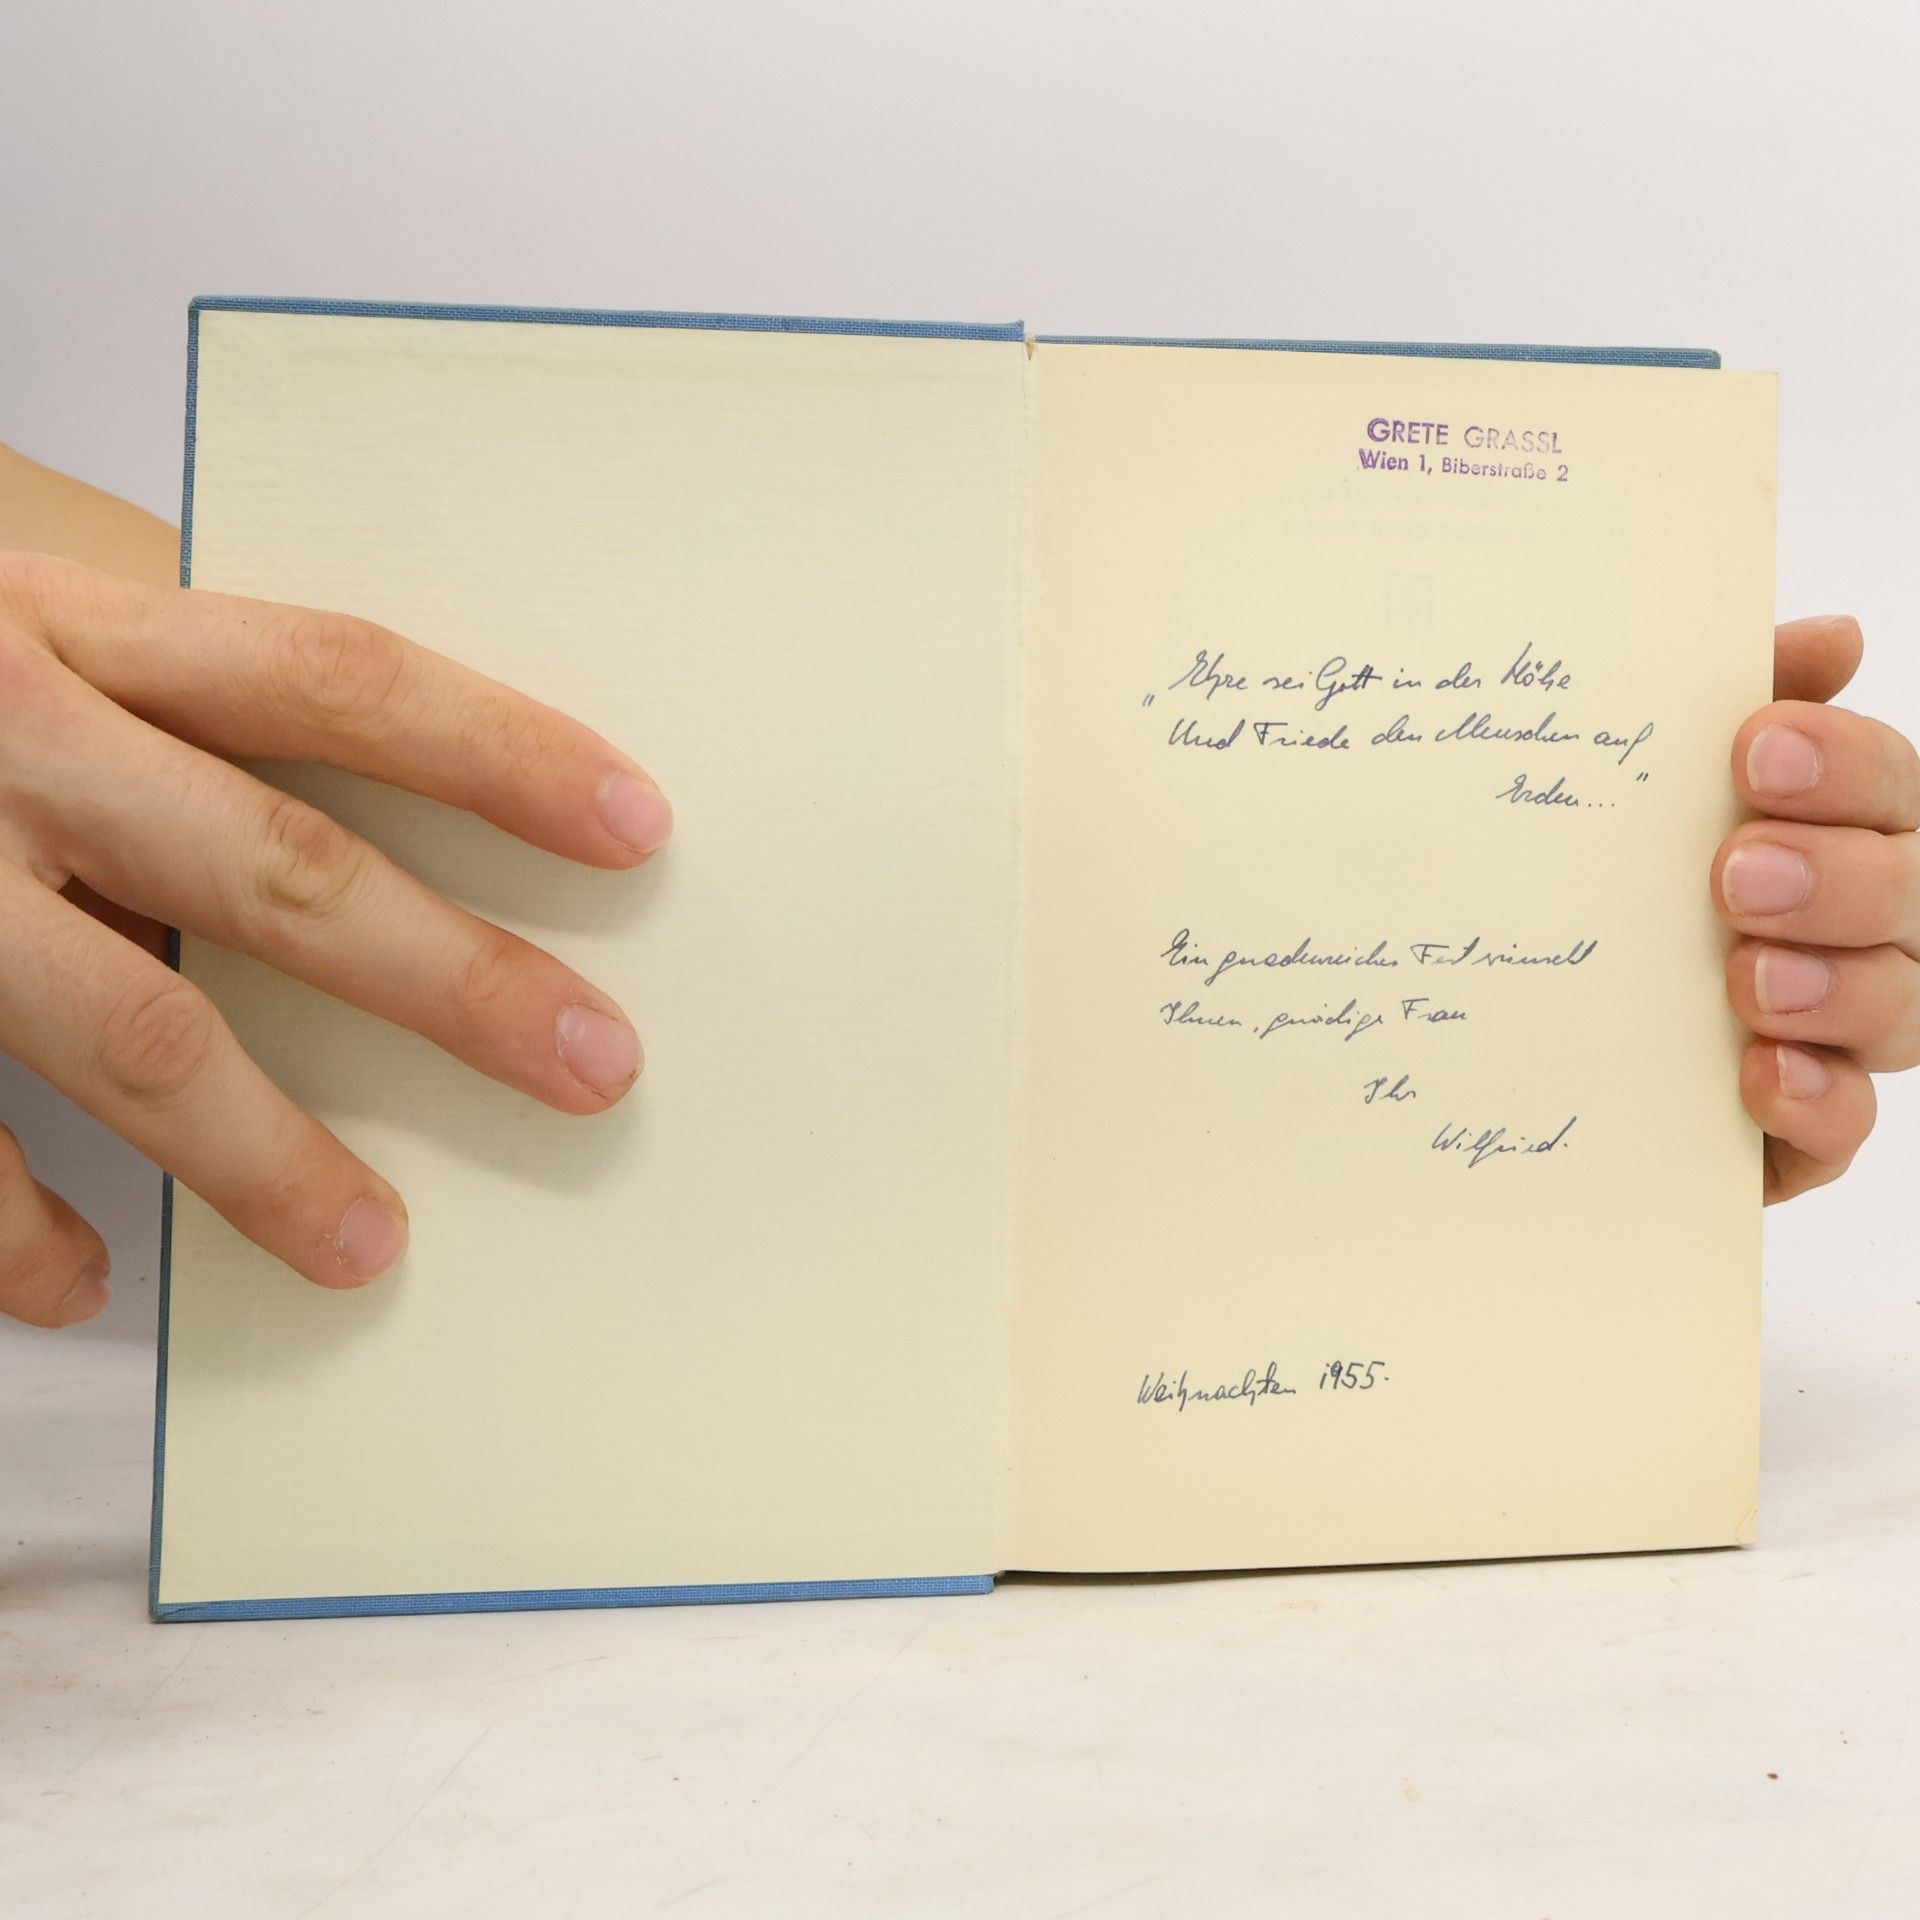 GRETE GRASSL
Wien 1, Biberstraße 2
„Ehre sei Gott in der Höhe
Und Friede den Menschen auf
Erden..."
Ein gnadenreiches Fest wünscht
Ihnen, gnädige Frau
Ihr
Wilfried.
Weihnachten 1955.